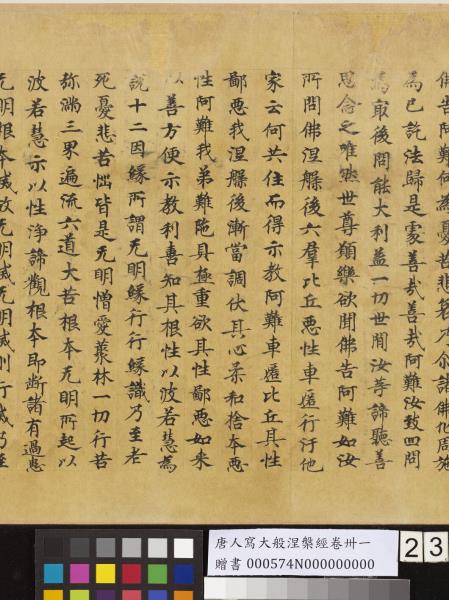 佛告阿難何為憂苦悲哀乃尒諸佛化周施
為已訖法歸是處善哉善哉阿難汝致四問
為冣後問能大利益一切世間汝等諦聽善
思念之唯然世尊願樂欲聞佛告阿難如汝
所問佛涅槃後六群比丘惡性車匿行汙他
家云何共住而得示教阿難車匿比丘其性
鄙惡我涅槃後漸當調伏其心柔和捨本惡
性阿難我弟難陁具極重欲其性鄙惡如来
以善方便示教利喜知其根性以波若慧為
說十二因緣所謂无明緣行行緣識乃至老
死憂悲苦惱皆是无明憎愛藂林一切行苦
弥滿三界遍流六道大苦根本无明所起以
波若慧示以性淨諦觀根本即断諸有過患
无明根本滅故无明滅无明滅則行滅乃至
唐人寫大般涅槃經卷卅一
贈書 000574N000000000
2 3